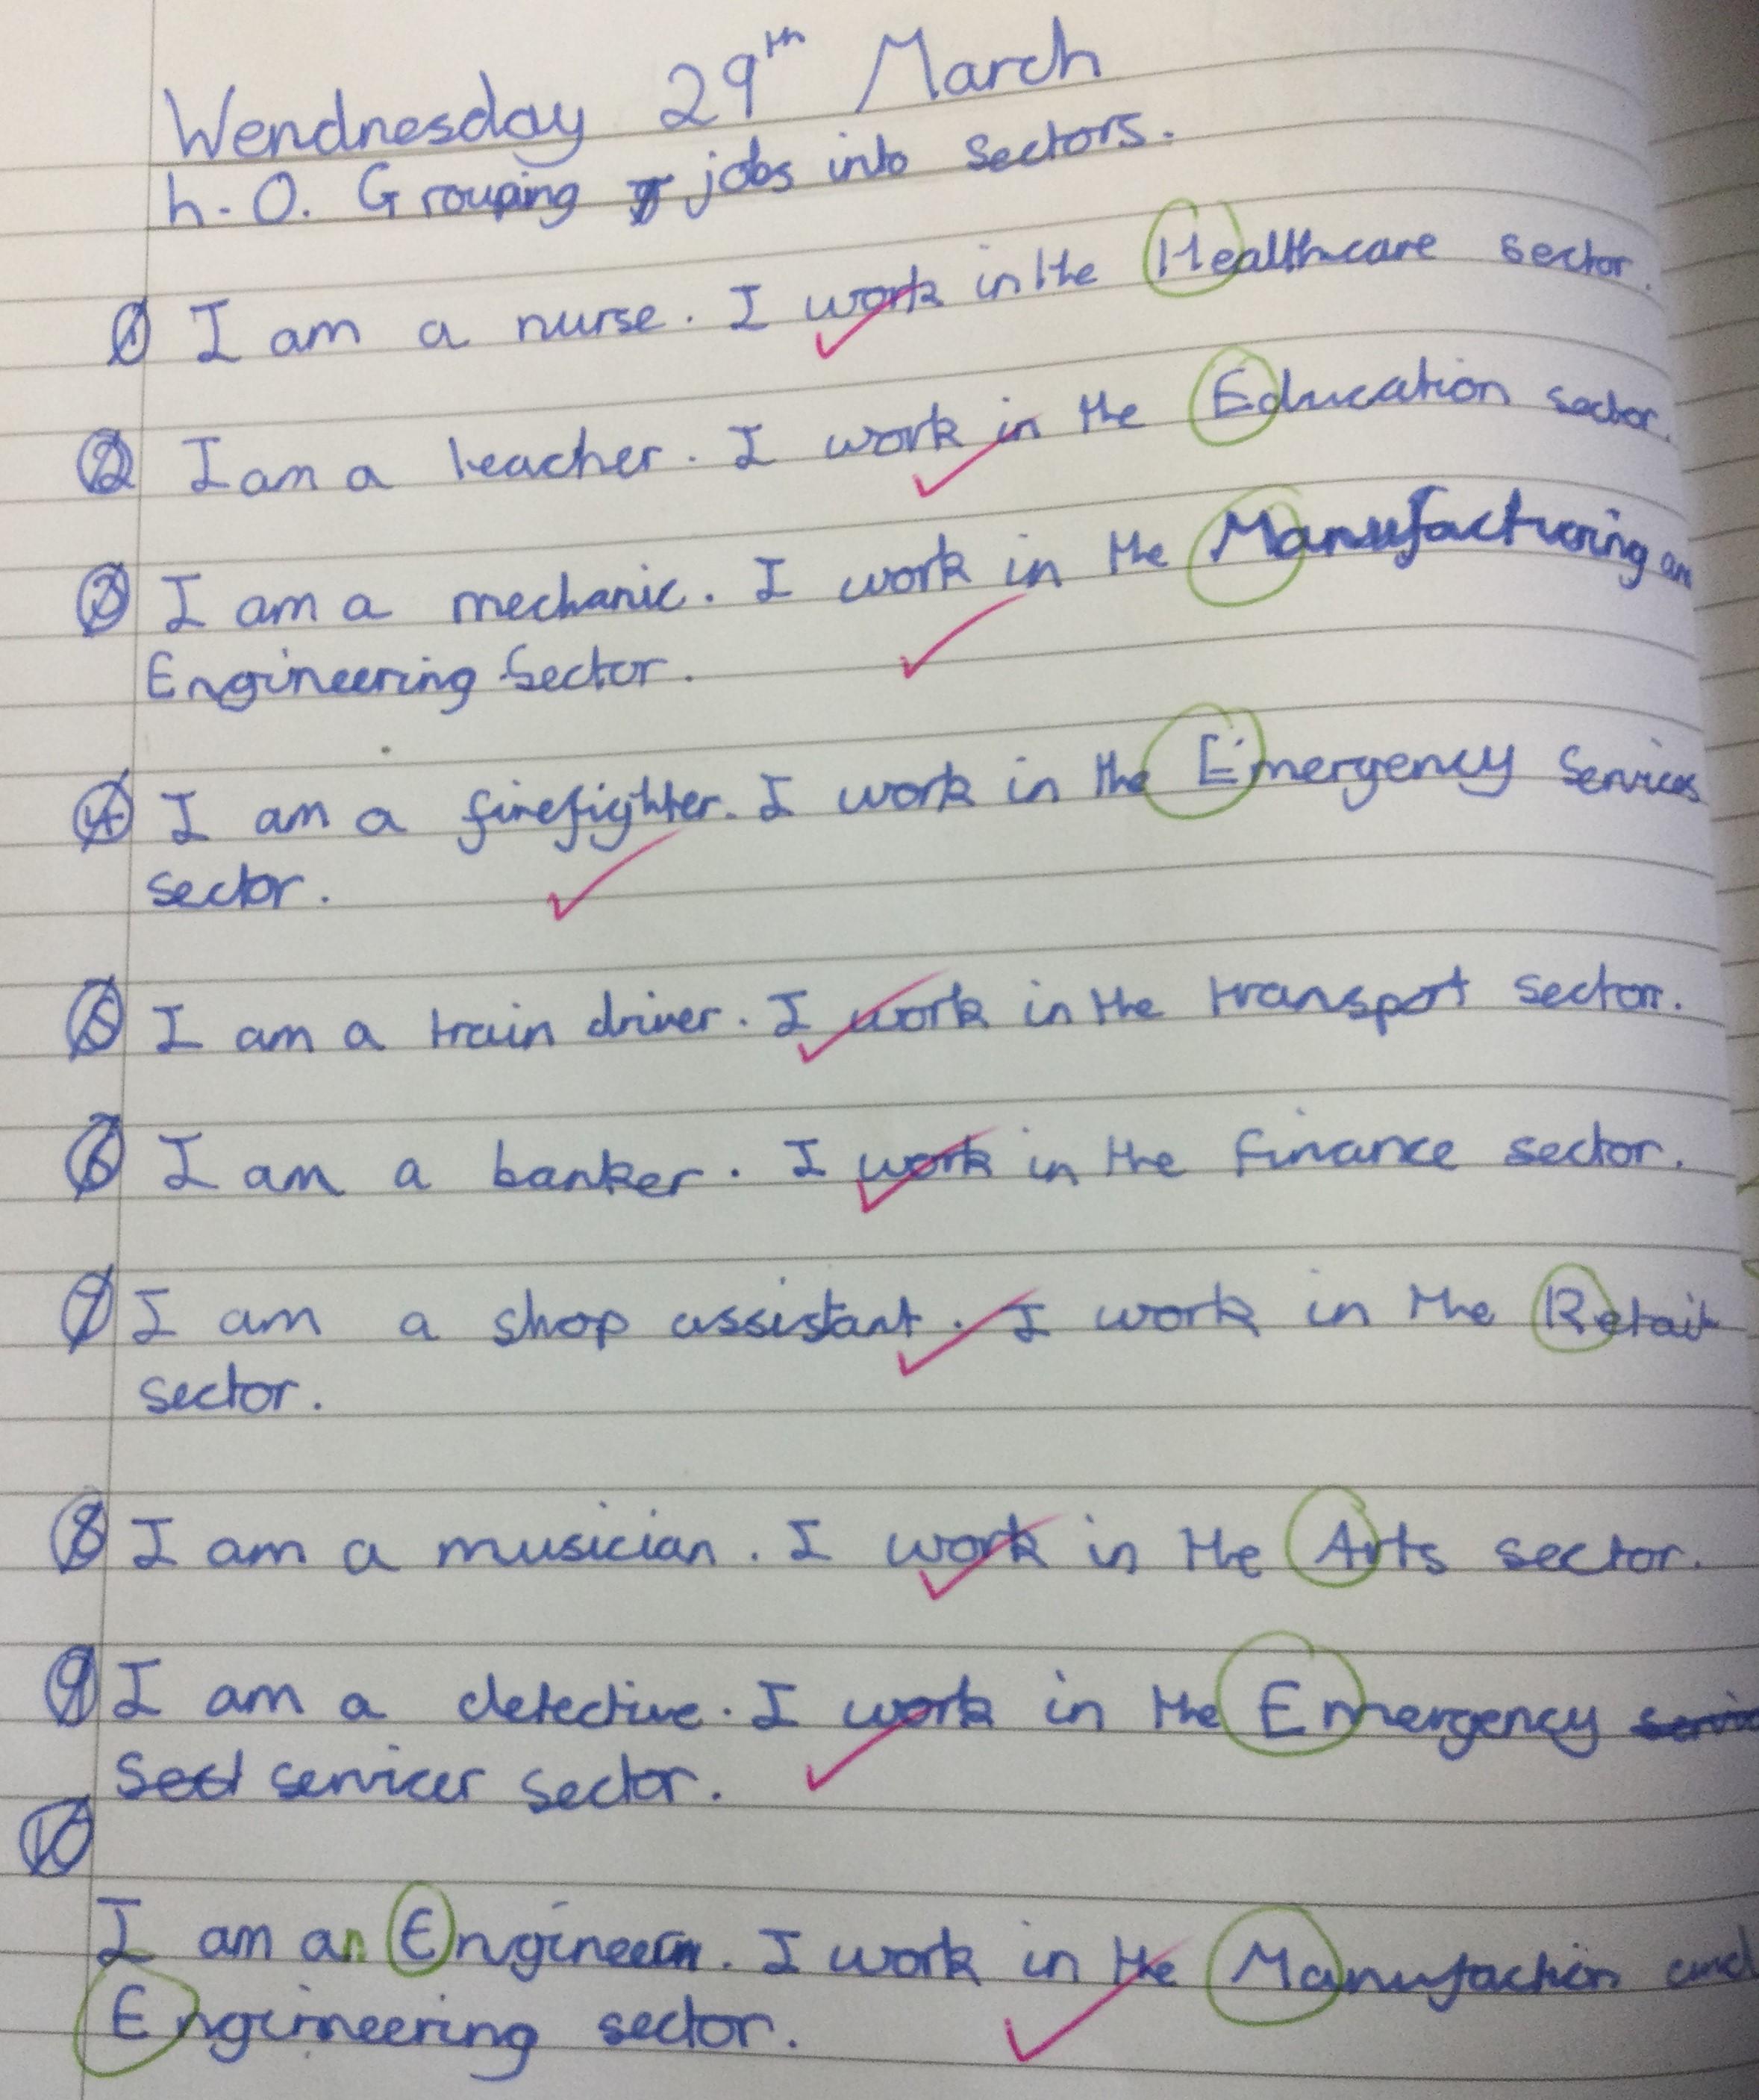 Wendnesday 29th March
h.O. Grouping jobs into sectors.
1 I am a nurse. I work in the Healthcare sector.
2 I am a teacher. I work in the Education sector.
3 I am a mechanic. I work in the Manufacturing an
Engineering Sector.
4 I am a firefighter. I work in the Emergency Services
sector.
5 I am a train driver. I work in the transport sector.
6 I am a banker. I work in the finance sector.
7 I am a shop assistant. I work in the Retail
sector.
8 I am a musician. I work in the Arts sector.
9 I am a detective. I work in the Emergency
services sector.
10
I am an Engineer. I work in the Manufaction and
Engineering sector.